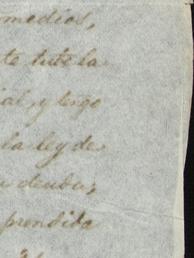 omedios,
te tuto la
ial, y tengo
la ley de
deudu,
prendida